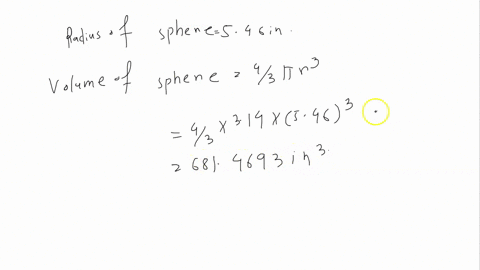 Radius of sphere = 5.46 in.
Volume of sphere = 4/3 πr³
= 4/3 × 314 × (5.46)³
= 681.4693 in³.